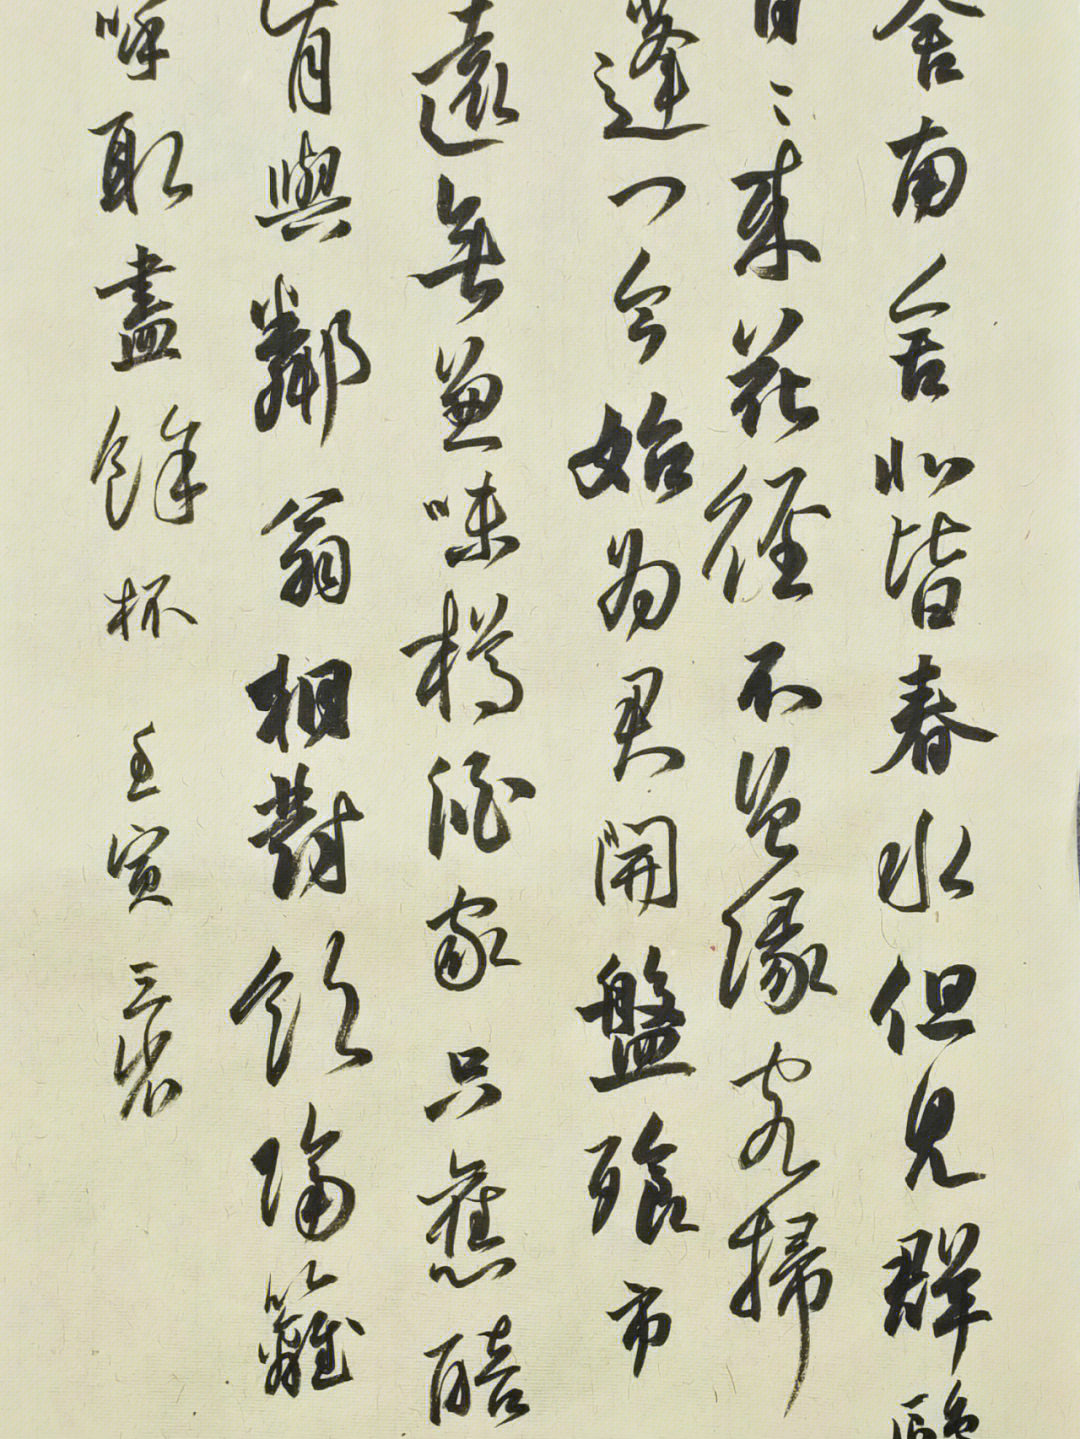 舍南舍北皆春水但見群鷗
日〻來花徑不曾緣客掃
蓬門今始為君開盤飧市
遠無兼味樽酒家只舊醅
肯與鄰翁相對飲隔籬
呼取盡餘杯 壬寅 三